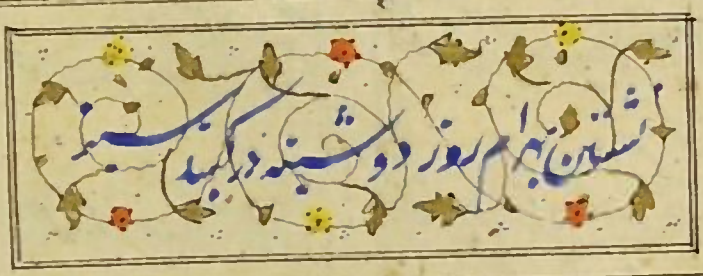 نشستن بهرام روز دوشنبه در گنبد سبز